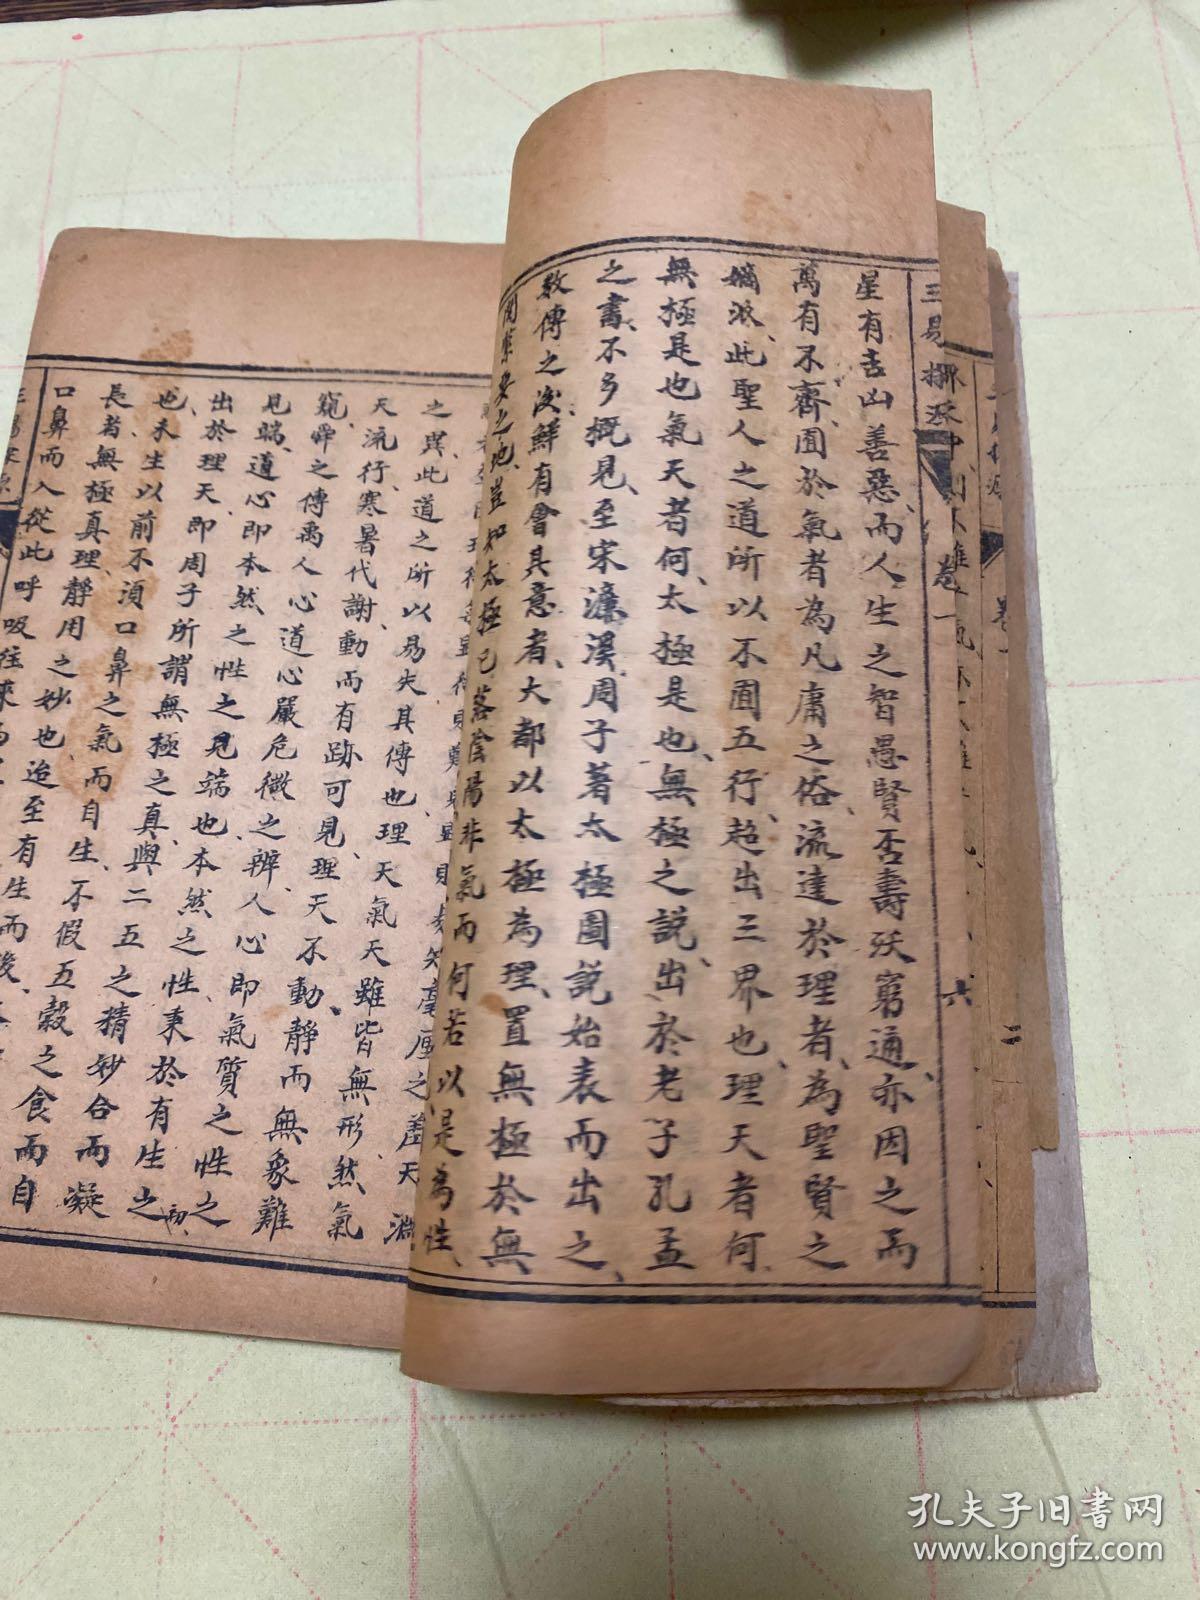 三易探源
卷一
六
星有吉凶善惡、而人生之智愚賢否壽殀窮通、亦因之而
萬有不齊、囿於氣者為凡庸之俗流、達於理者、為聖賢之
嫡派、此聖人之道所以不囿五行、超出三界也、理天者何
無極是也、氣天者何、太極是也、無極之說、出於老子孔孟
之書、不多概見、至宋濂溪周子著太極圖說始表而出之、
數傳之後鮮有會其意者、大都以太極為理、置無極於無
之地、豈知太極已落陰陽非氣而何若以是為性、
之異、此道之所以易失其傳也、理天氣天雖皆無形、然氣
天流行、寒暑代謝、動而有跡可見、理天不動、靜而無象難
窺、舜之傳禹人心道心嚴危微之辨、人心即氣質之性之
見端、道心即本然之性之見端也、本然之性、秉於有生之初、
出於理天、即周子所謂無極之真、與二五之精妙合而凝
也、未生以前不須口鼻之氣而自生、不假五穀之食而自
長者、無極真理、靜用之妙也、迨至有生而後、
口鼻而入從此呼吸往來
卷一
二
孔夫子旧书网
www.kongfz.com